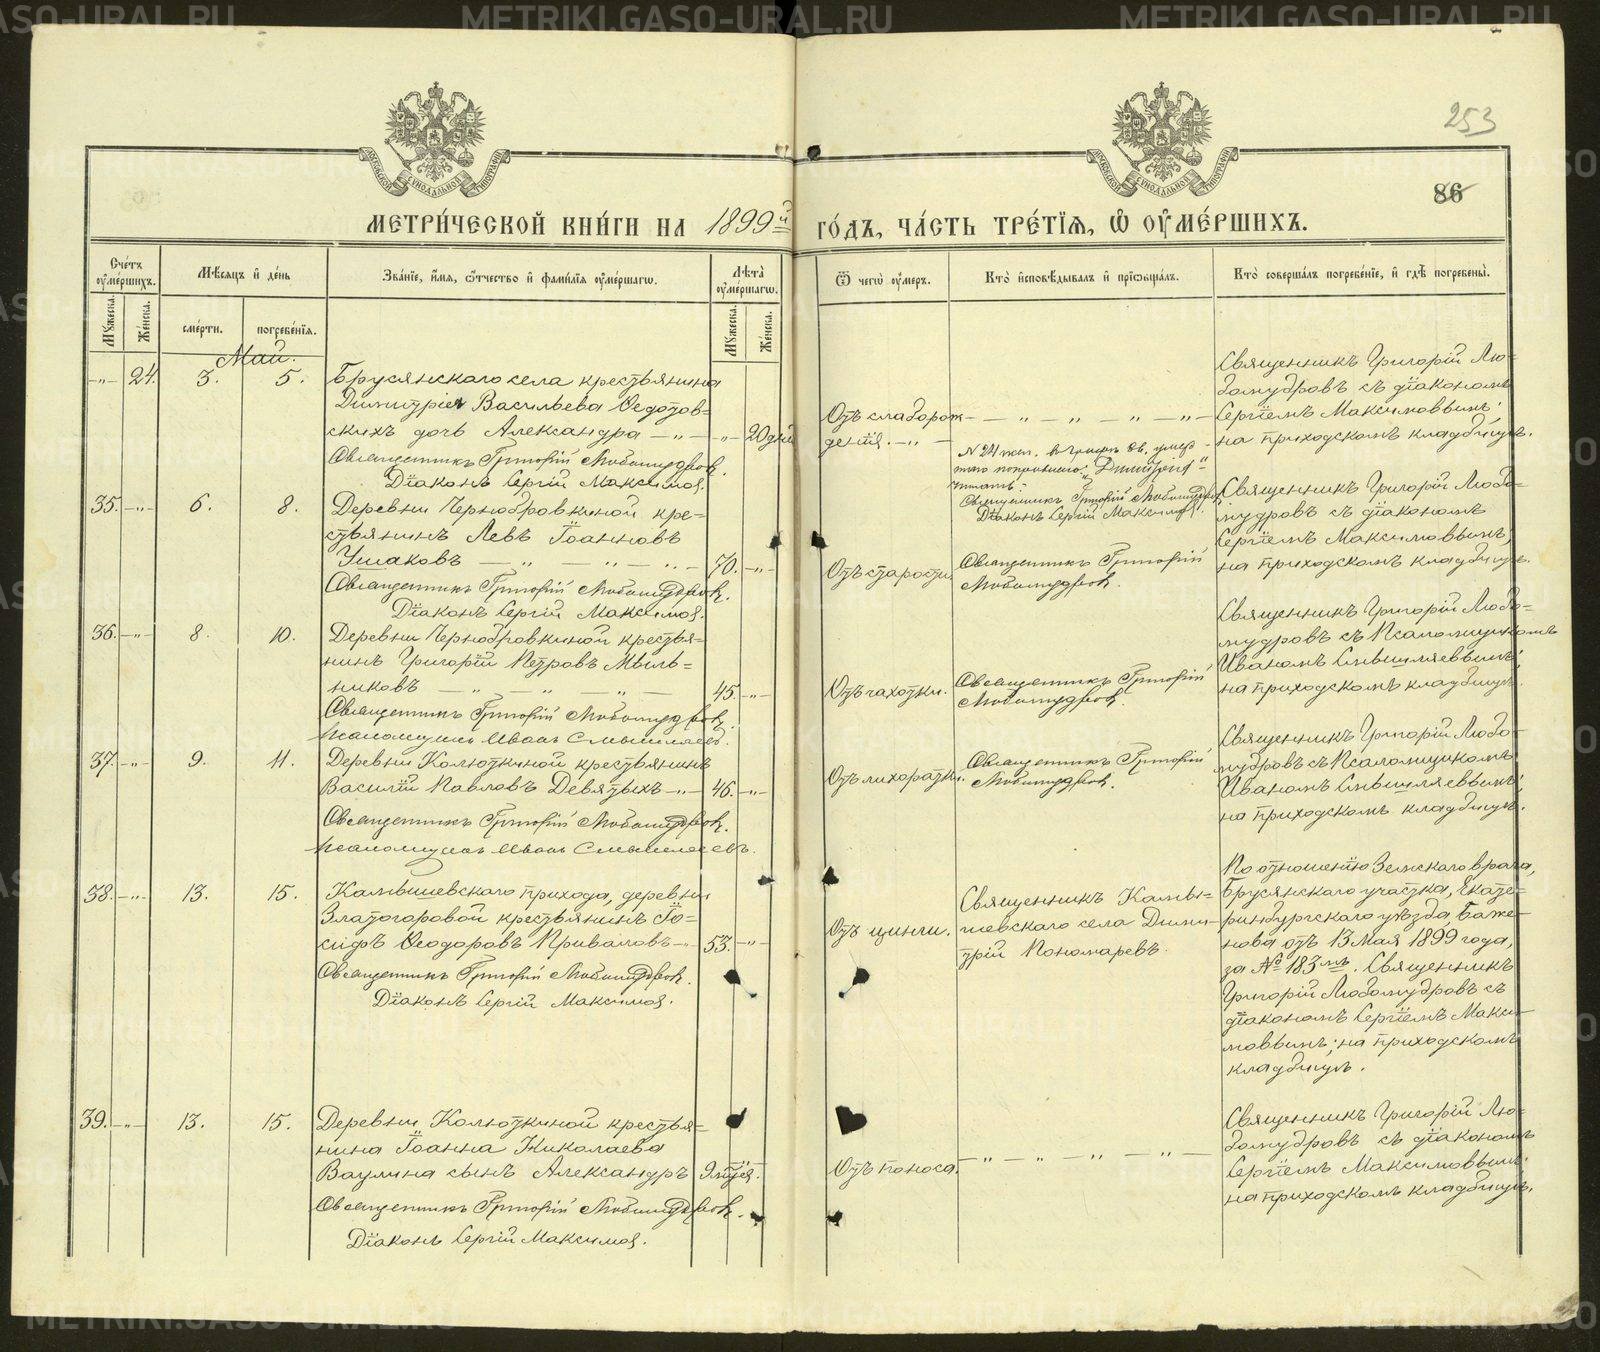 253
86
МОСКОВСКОЙ СѴНОДАЛЬНОЙ ТИПОГРАФІИ
МОСКОВСКОЙ СѴНОДАЛЬНОЙ ТИПОГРАФІИ
МЕТРИ́ЧЕСКОЙ КНИ́ГИ НА 1899й ГО́ДЪ, ЧА́СТЬ ТРЕ́ТІЯ, Ѡ ОУМЕ́РШИХЪ.
Сче́тъ оуме́ршихъ.
Мꙋжеска.
Же́нска.
Мѣ́сяцъ и де́нь
сме́рти.
погребе́нія.
Зва́ніе, и́мя, ѻ́тчество и фами́лія оуме́ршагѡ.
Лѣ́та оуме́ршагѡ.
Мꙋжеска.
Же́нска.
Ѿ чегѡ̀ оу́меръ.
Кто̀ исповѣ́дывалъ и прїѡбща́лъ.
Кто̀ соверша́лъ погребе́ніе, и гдѣ̀ погребены̀.
Май.
-"- 24. 3. 5. Брусянскаго села крестьянина
Димитрія Васильева Ѳедотов=
скихъ дочь Александра -"- -"- 20 дней
Священникъ Григорій Любомудровъ.
Діаконъ Сергій Максимов.
Отъ слаборож-
денія. -"-
-"- -"- -"- -"-
№ 24 жен. въ графѣ
"Димитрія"
Священникъ Григорій Любомудров
Діаконъ Сергій Максимов
Священникъ Григорій Лю=
бомудровъ съ діакономъ
Сергіемъ Максимовымъ;
на приходскомъ кладбищѣ.
35. -"- 6. 8. Деревни Чернобровкиной кре=
стьянинъ Левъ Іоанновъ
Ушаковъ -"- -"- -"- 70. -"-
Священникъ Григорій Любомудровъ.
Діаконъ Сергій Максимов.
Отъ старости
Священникъ Григорій
Любомудровъ.
Священникъ Григорій Любо-
мудровъ съ діакономъ
Сергіемъ Максимовымъ;
на приходскомъ кладбищѣ.
36. -"- 8. 10. Деревни Чернобровкиной крестья=
нинъ Григорій Петровъ Мыль=
никовъ -"- -"- -"- 45 -"-
Священникъ Григорій Любомудровъ.
Псаломщикъ Иванъ Смышляевъ.
Отъ чахотки.
Священникъ Григорій
Любомудровъ.
Священникъ Григорій Любо-
мудровъ съ Псаломщикомъ
Иваномъ Смышляевымъ;
на приходскомъ кладбищѣ.
37. -"- 9. 11. Деревни Колюткиной крестьянинъ
Василій Павловъ Девятыхъ -"- 46. -"-
Священникъ Григорій Любомудровъ.
Псаломщикъ Иванъ Смышляевъ.
Отъ лихоратки.
Священникъ Григорій
Любомудровъ.
Священникъ Григорій Любо-
мудровъ съ Псаломщикомъ
Иваномъ Смышляевымъ;
на приходскомъ кладбищѣ.
38. -"- 13. 15. Камышевскаго прихода, деревни
Златогоровой крестьянинъ Іо=
сифъ Ѳеодоровъ Приваловъ -"- 53. -"-
Священникъ Григорій Любомудровъ.
Діаконъ Сергій Максимов.
Отъ цинги.
Священникъ Камы=
шевскаго села Дими-
трій Пономаревъ.
По отношенію Земскаго врача,
Брусянскаго участка, Екате=
ринбургскаго уѣзда, Баже-
нова отъ 13 Мая 1899 года,
за № 183мъ. Священникъ
Григорій Любомудровъ съ
діакономъ Сергіемъ Макси-
мовымъ; на приходскомъ
кладбищѣ.
39. -"- 13. 15. Деревни Колюткиной крестья=
нина Іоанна Николаева
Ваулина сынъ Александръ 9 мѣся.
Священникъ Григорій Любомудровъ.
Діаконъ Сергій Максимов.
Отъ поноса.
-"- -"- -"- -"-
Священникъ Григорій Лю-
бомудровъ съ діакономъ
Сергіемъ Максимовымъ;
на приходскомъ кладбищѣ.
METRIKI.GASO-URAL.RU